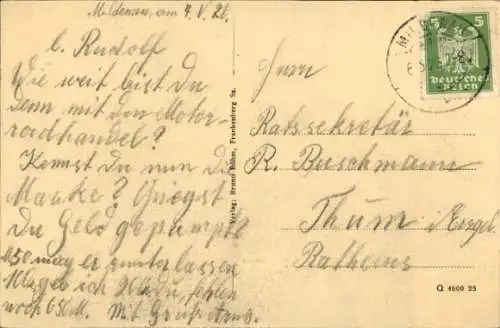 Mildenau, am 4. V. 26.
l. Rudolf
Wie weit bist Du
denn mit dem Motor-
radhandel?
Kennst Du nun die
Marke? Kriegst
Du Geld gepumpt
450 mag er runterlassen
geb ich 20 zu, fehlen
noch 650M. Mit Gruß Arno.
Verlag: Bruno Böhm, Frankenberg Sa.
5 5
Deutsches
Reich
Herrn
Ratssekretär
R. Buschmann
Thum i. Erzgeb.
Rathaus
Q 4600 25